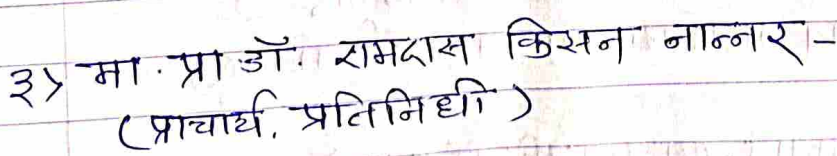 ३> मा. प्रा. डॉ. रामदास किसन नान्नर -
(प्राचार्य. प्रतिनिधी)